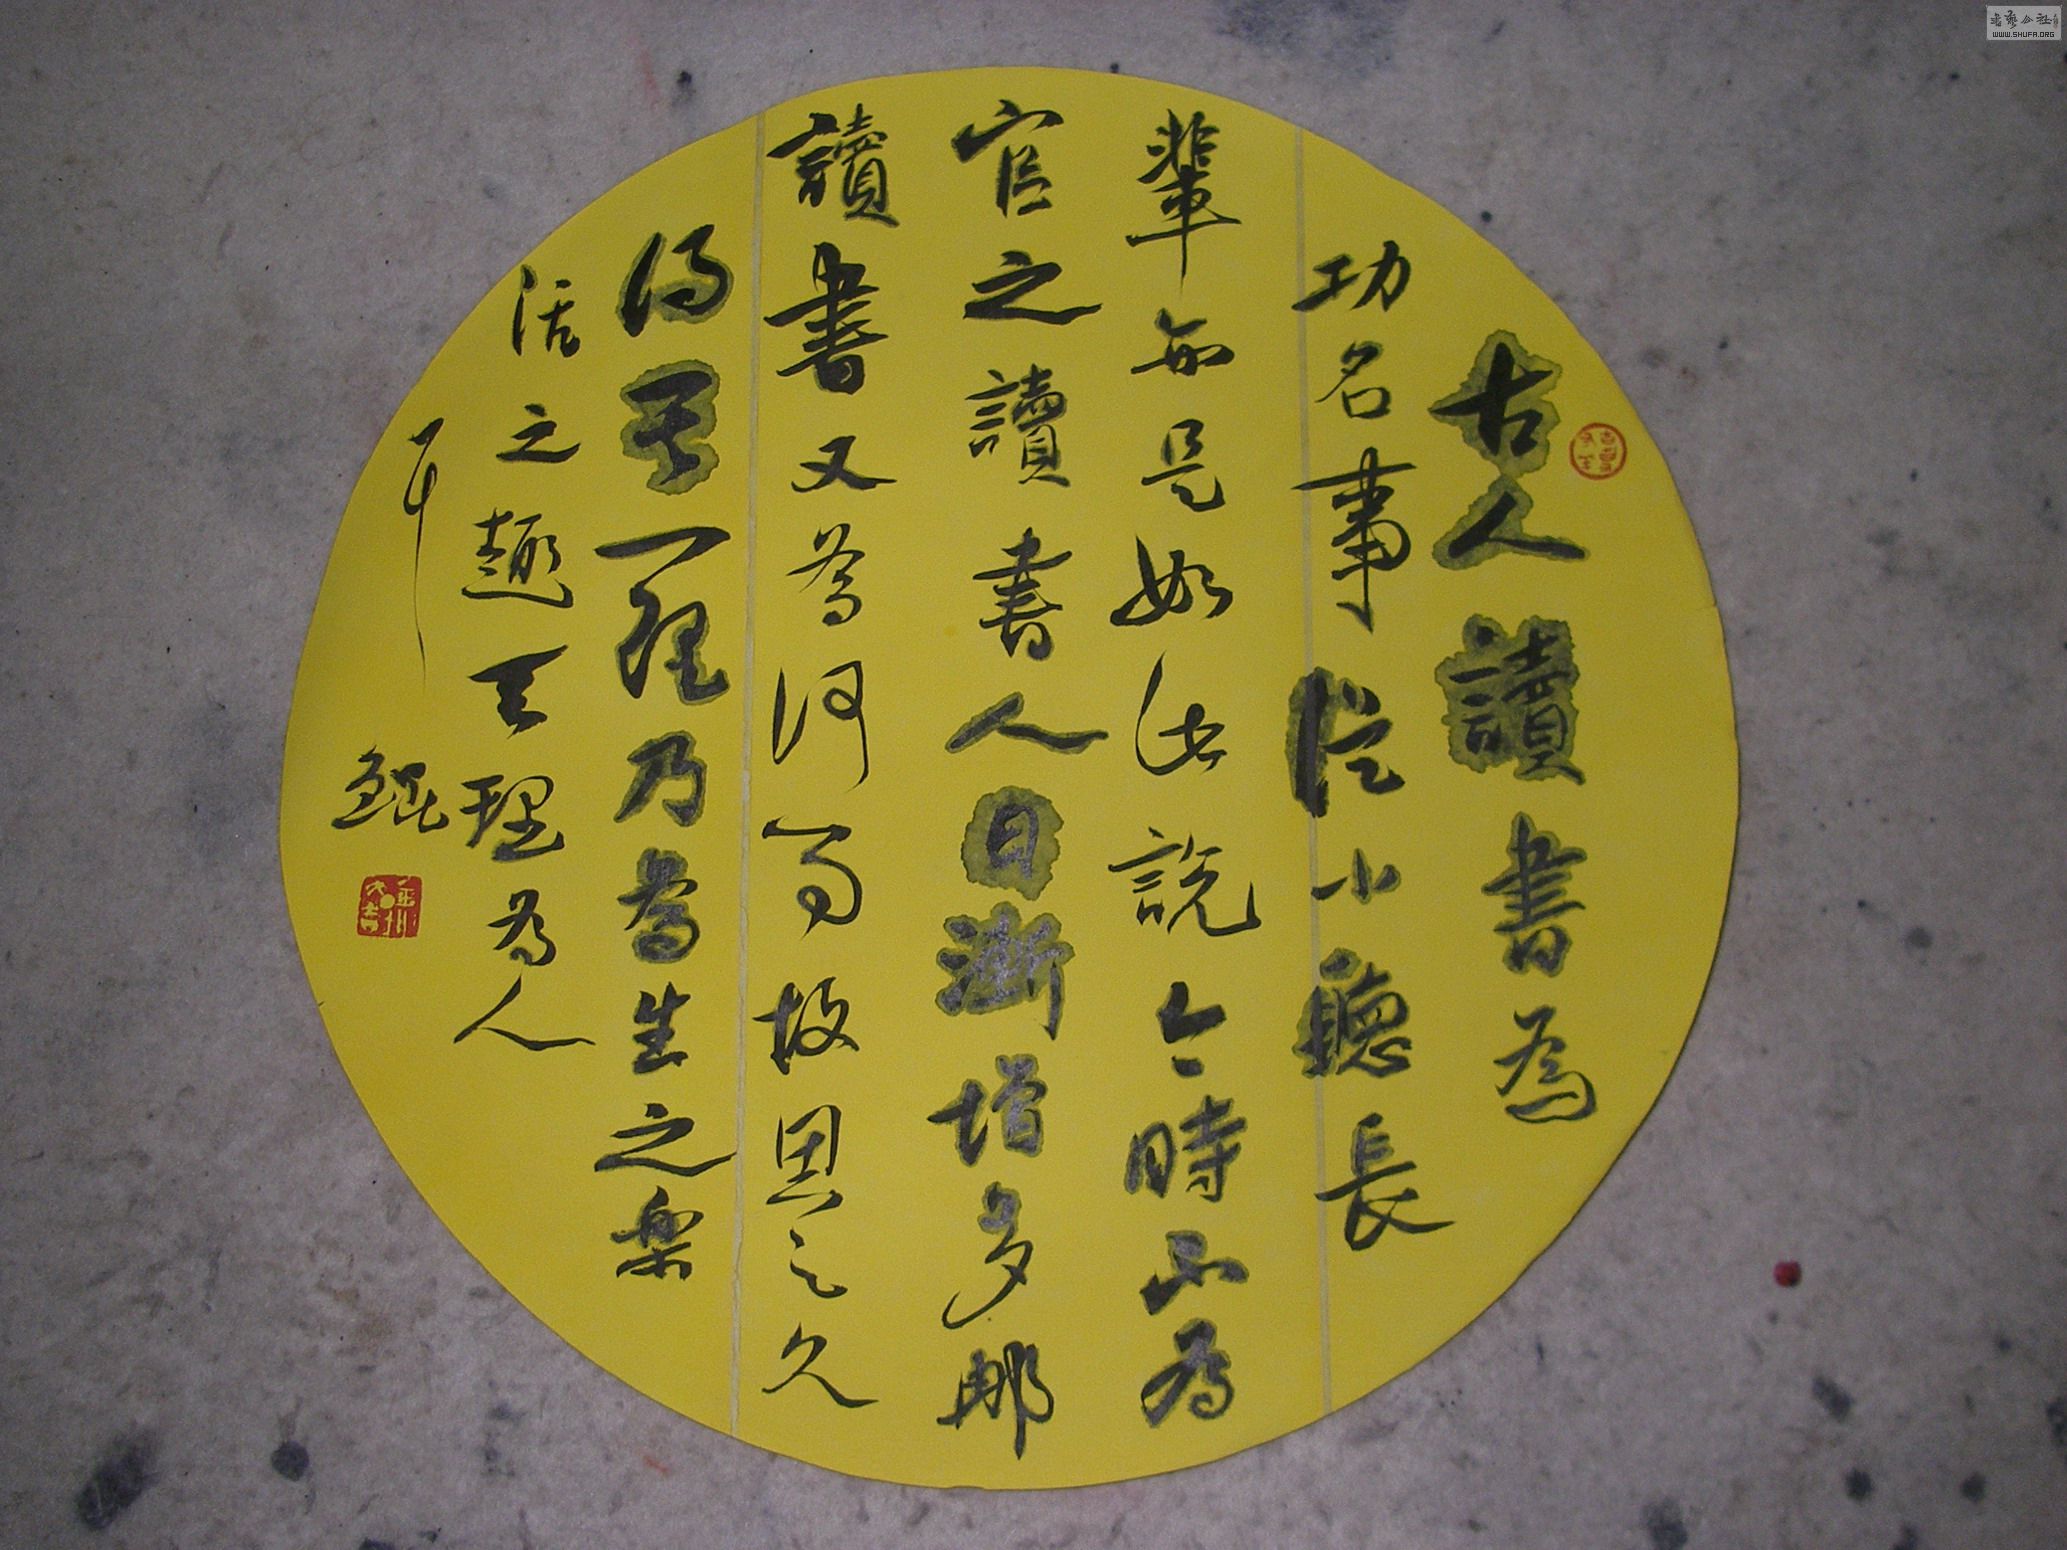 古人讀書為
功名事從小聽長
輩亦是如此說今時不為
官之讀書人日漸增多那
讀書又為何焉故思之久
得其一理乃為生之樂
活之趣天理為人
耳
鯤
書藝公社
WWW.SHUFA.ORG